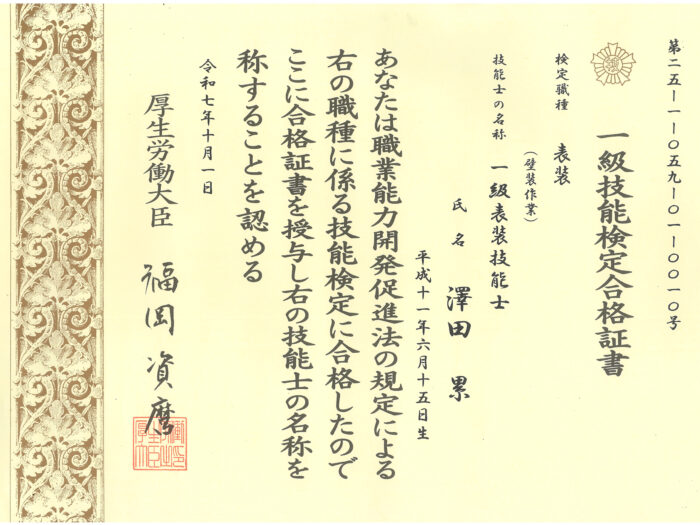 第二五-一-一〇五九-〇一-〇〇一〇号
一級技能検定合格証書
検定職種 表装
(壁装作業)
技能士の名称 一級表装技能士
氏名 澤田 累
平成十一年六月十五日生
あなたは職業能力開発促進法の規定による
右の職種に係る技能検定に合格したので
ここに合格証書を授与し右の技能士の名称を
称することを認める
令和七年十月一日
厚生労働大臣 福岡資麿